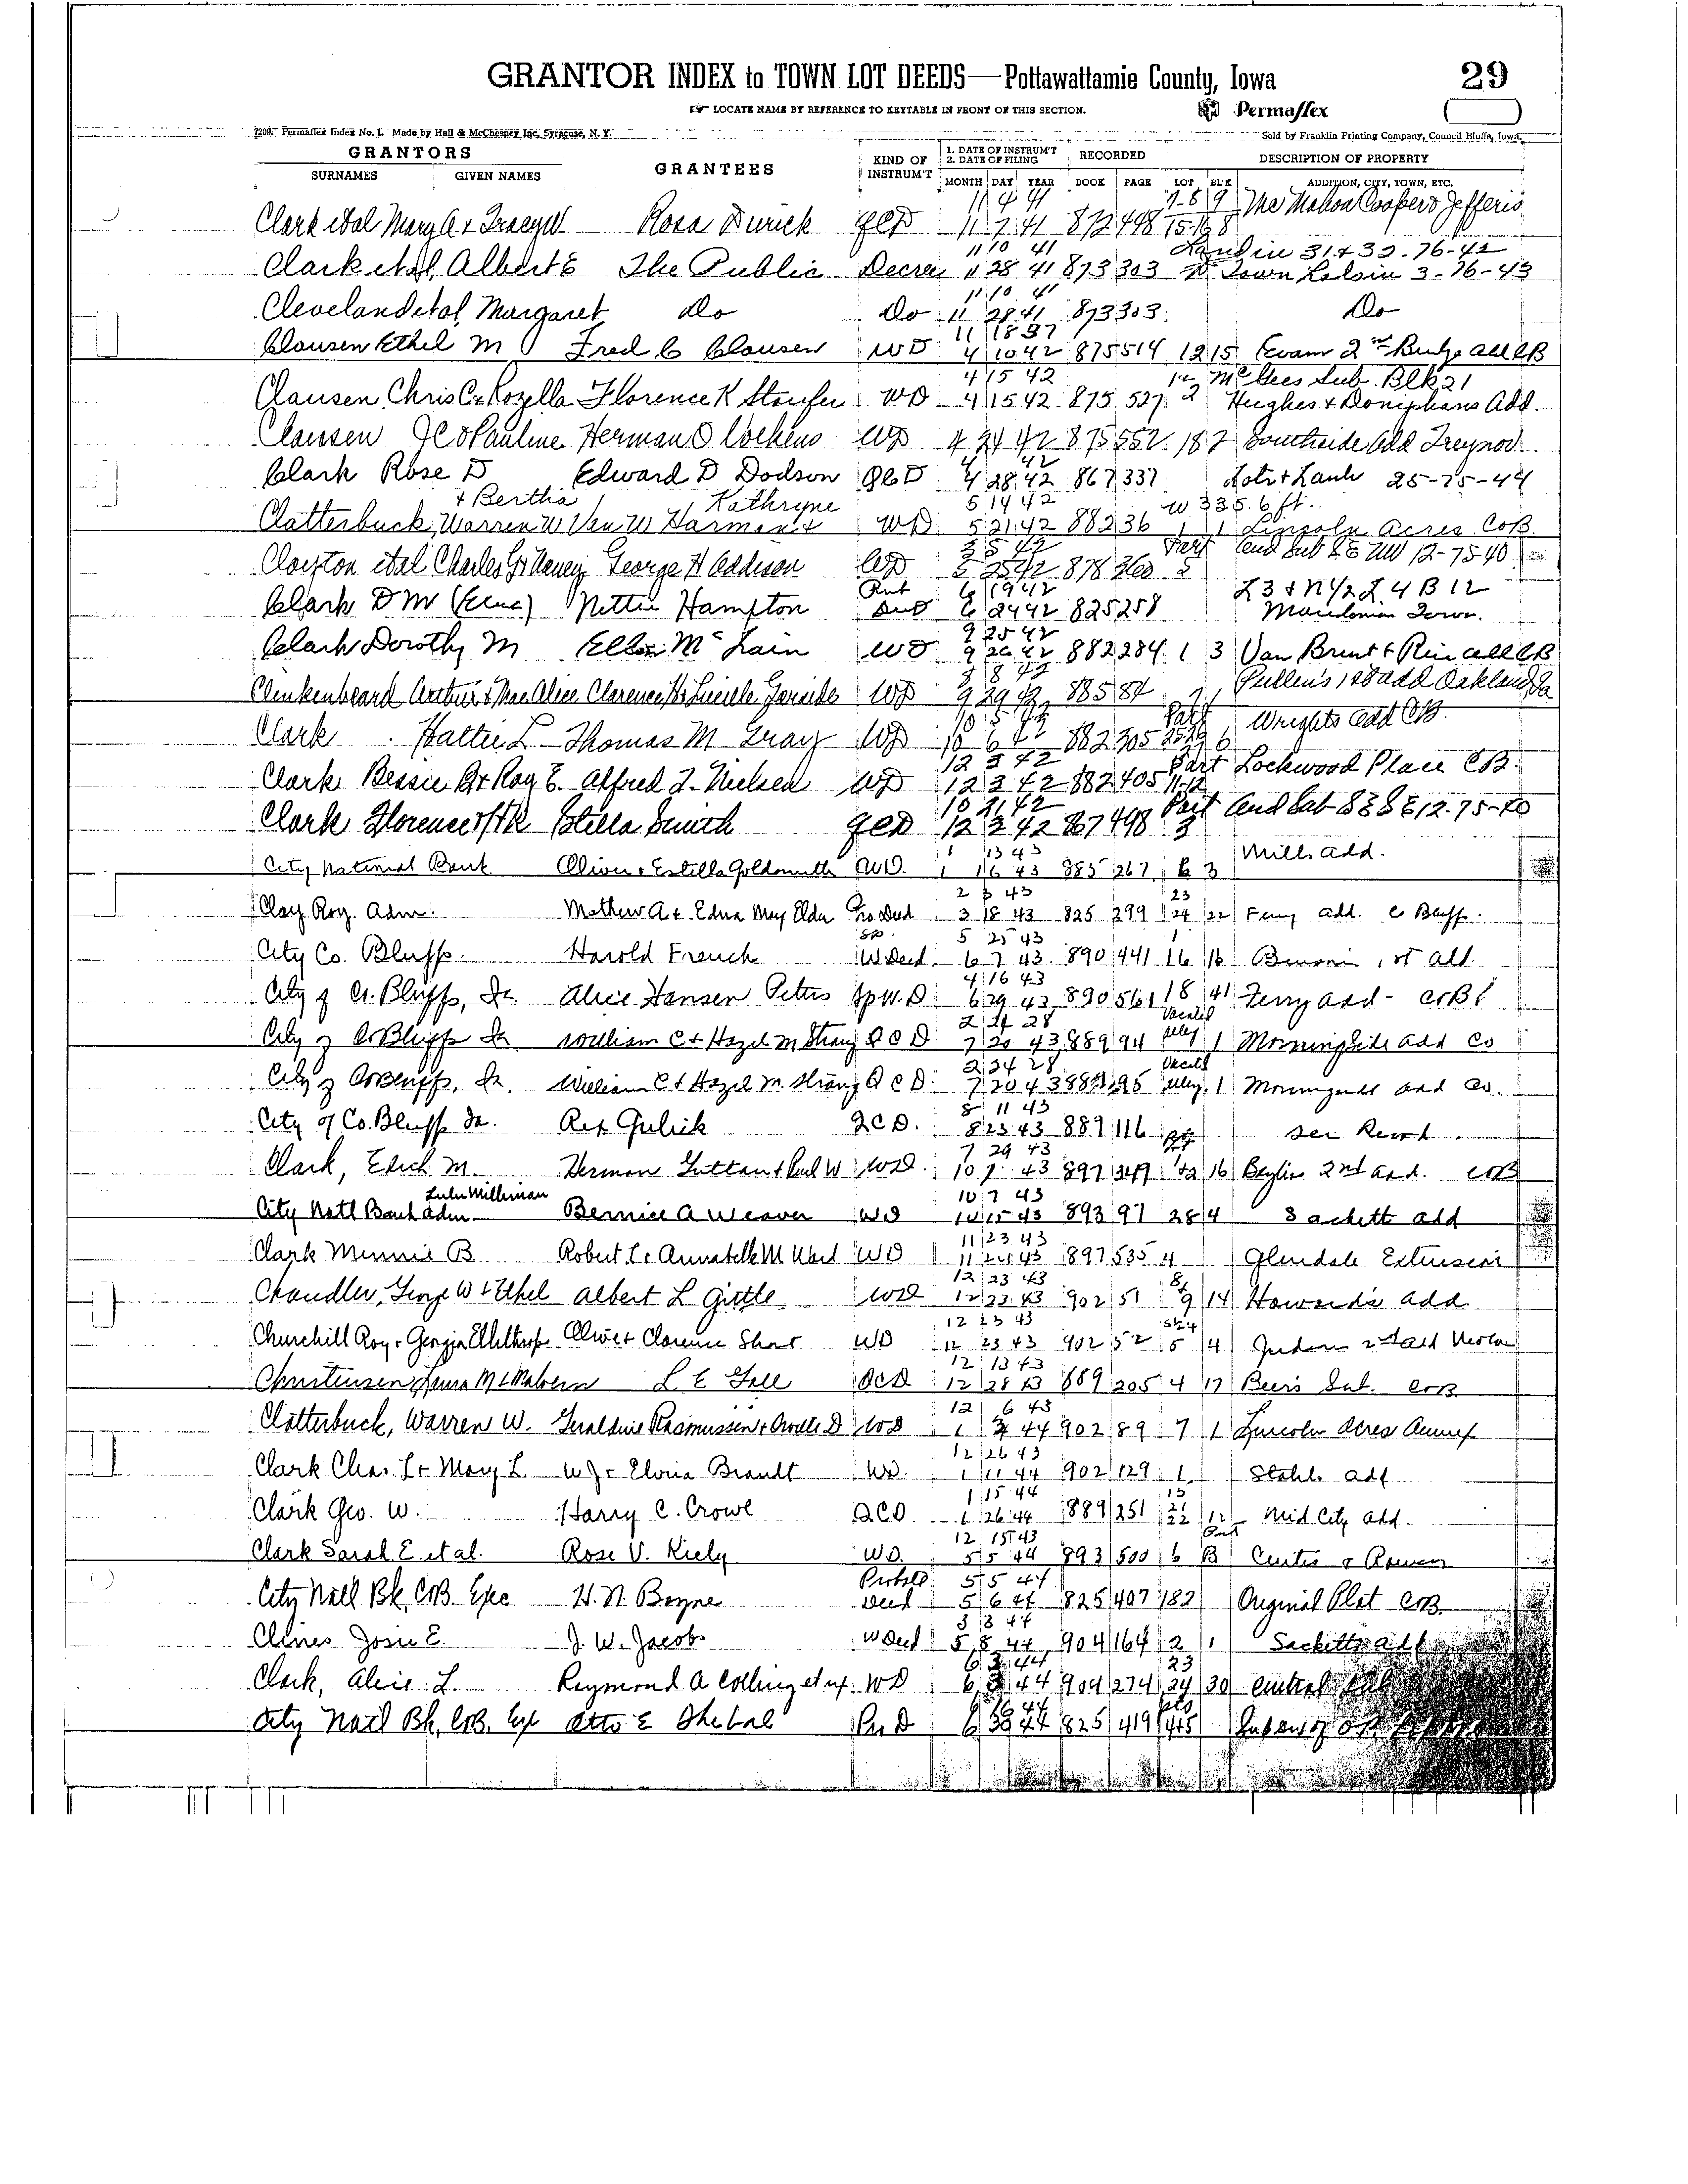 GRANTOR INDEX to TOWN LOT DEEDS—Pottawattamie County, Iowa 29
LOCATE NAME BY REFERENCE TO KEYTABLE IN FRONT OF THIS SECTION. Permaflex
7209. Permaflex Index No. 1. Made by Hall & McChesney Inc, Syracuse, N. Y. Sold by Franklin Printing Company, Council Bluffs, Iowa.
GRANTORS GRANTEES KIND OF INSTRUM'T 1. DATE OF INSTRUM'T 2. DATE OF FILING RECORDED DESCRIPTION OF PROPERTY
SURNAMES GIVEN NAMES MONTH DAY YEAR BOOK PAGE LOT BLK ADDITION, CITY, TOWN, ETC.
11 4 41 7-8 9 Mc Mahon Cooper & Jefferis
Clark etal Mary A + Rosa Durick QCD 11 7 41 872 448 15-16 8
11 10 41 Land in 31 + 32-76-42
Clark etal, Albert E The Public Decree 11 28 41 873 303 Town Lots in 3-76-43
11 10 41
Cleveland etal, Margaret Do Do 11 28 41 873 303 Do
11 18 37
Clausen Ethel M Fred C Clausen WD 4 10 42 875 514 12 15 Evans 2nd Bridge add CB
4 15 42 McGees Sub. Blk 21
Clausen, Chris C + Rozella Florence K Staufer WD 4 15 42 875 527 2 Hughes + Doniphans Add.
Claussen Pauline Herman O WD 4 24 42 875 552 18 7 Southside Add Treynor
42
Clark Rose D Edward D Dodson QCD 4 28 42 867 337 Lots + Lands 25-75-44
+ Bertha Kathryne 5 19 42 W 335.6 ft.
Clatterbuck, Warren W Harman + WD 5 21 42 882 36 1 1 Lincoln Acres CoB
42 Part Aud Sub SE NW 12-75-40
Clayton etal Charles G + Nancy George H Addison WD 5 25 42 878 360 5
6 19 42 L 3 + N 1/2 L 4 B 12
Clark D M (Exec) Nettie Hampton 6 24 42 825 258 Macedonia Town.
9 25 42
Clark Dorothy M Ellen Mc Lain WD 9 26 42 882 284 1 3 Van Brunt + Rice add CB
8 8 42 Pullen's 1st add Oakland, Ia
Clinkenbeard Arthur + Mae Alice Clarence H + Lucille WD 9 29 42 885 84
10 5 42 Part Wrights Add CB.
Clark Hattie L Thomas M Gray WD 10 6 42 882 305 6
12 3 42 Part Lockwood Place CB.
Clark Bessie B + Roy E. Alfred J. Nielsen WD 12 3 42 882 405 11-12
10 21 42 Part Aud Sub 12-75-40
Clark Florence Stella Smith QCD 12 3 42 867 498 3
1 13 43 Mills add.
City National Bank Oliver + Estella Goldsmith WD. 1 16 43 885 267 6 3
2 8 43 23
Clay Roy. Adm. Mathew A + Edna May Elder 3 18 43 825 299 24 22 Ferry add. C Bluffs.
5 25 43
City Co. Bluffs. Harold French W Deed 6 7 43 890 441 16 16 Benson 1st add.
4 16 43
City of Co. Bluffs, Ia. Alice Hansen Peters Sp. W. D. 6 29 43 890 561 18 41 Ferry add - CoBl
2 24 28 Vacated
City of CoBluffs Ia William C + Hazel M Strang QCD 7 20 43 889 94 alley 1 Morningside add Co
2 24 28 Vacated
City of CoBluffs, Ia. William C + Hazel M. Strang QCD. 7 20 43 889 95 alley. 1 Morningside add Co.
8 11 43
City of Co. Bluffs Ia. Rex Gulick QCD. 8 23 43 889 116 pt See Record.
7 29 43
Clark, Edith M. Herman Sutton + WD. 10 7 43 897 349 16 Bayliss 2nd add. CoB
Lulu Milliman 10 7 43
City Natl Bank Adm Bernice A Weaver WD 10 15 43 893 97 28 4 Sackett add
11 23 43
Clark Minnie B. Robert L + Annabelle M Ward WD 11 24 43 897 535 4 Glendale Extension
12 23 43 8
Chandler, George W + Ethel Albert L Gittle WD 12 23 43 902 51 9 14 Howards add
12 23 43
Churchill Roy + Georgia Oliver + Clarence Short WD 12 23 43 902 52 5 14 Judson 2nd add Neola
12 13 43
Christensen, Laura M Malvern L E QCD 12 28 43 889 205 4 17 Beers Sub. CoB
12 6 43
Clatterbuck, Warren W. Geraldine Rasmussen + Orville D WD 1 3 44 902 89 7 1 Lincoln Acres Annex
12 26 43
Clark Chas. L + Mary L W J + Elvria Brandt WD. 1 11 44 902 129 1 Stahls add
1 15 44
Clark Geo. W. Harry C. Crowl QCD 1 26 44 889 251 21 22 12 Mid City add.
12 15 43
Clark Sarah E et al. Rose V. Kiely WD. 5 5 44 893 500 6 B Curtis & Ramsey
Probate 5 5 44
City Natl Bk CoB Exec H. N. Boyne Deed 5 6 44 825 407 182 Original Plat CoB
3 3 44
Clines Josie E. J. W. Jacobs W Deed 5 8 44 904 164 2 1 Sacketts add
6 3 44 23
Clark, Alice L. Raymond A Colling et ux. WD 6 3 44 904 274 24 30 Central Sub
City Natl Bk CoB. Ex Otto E Pr D 6 30 44 825 419 445